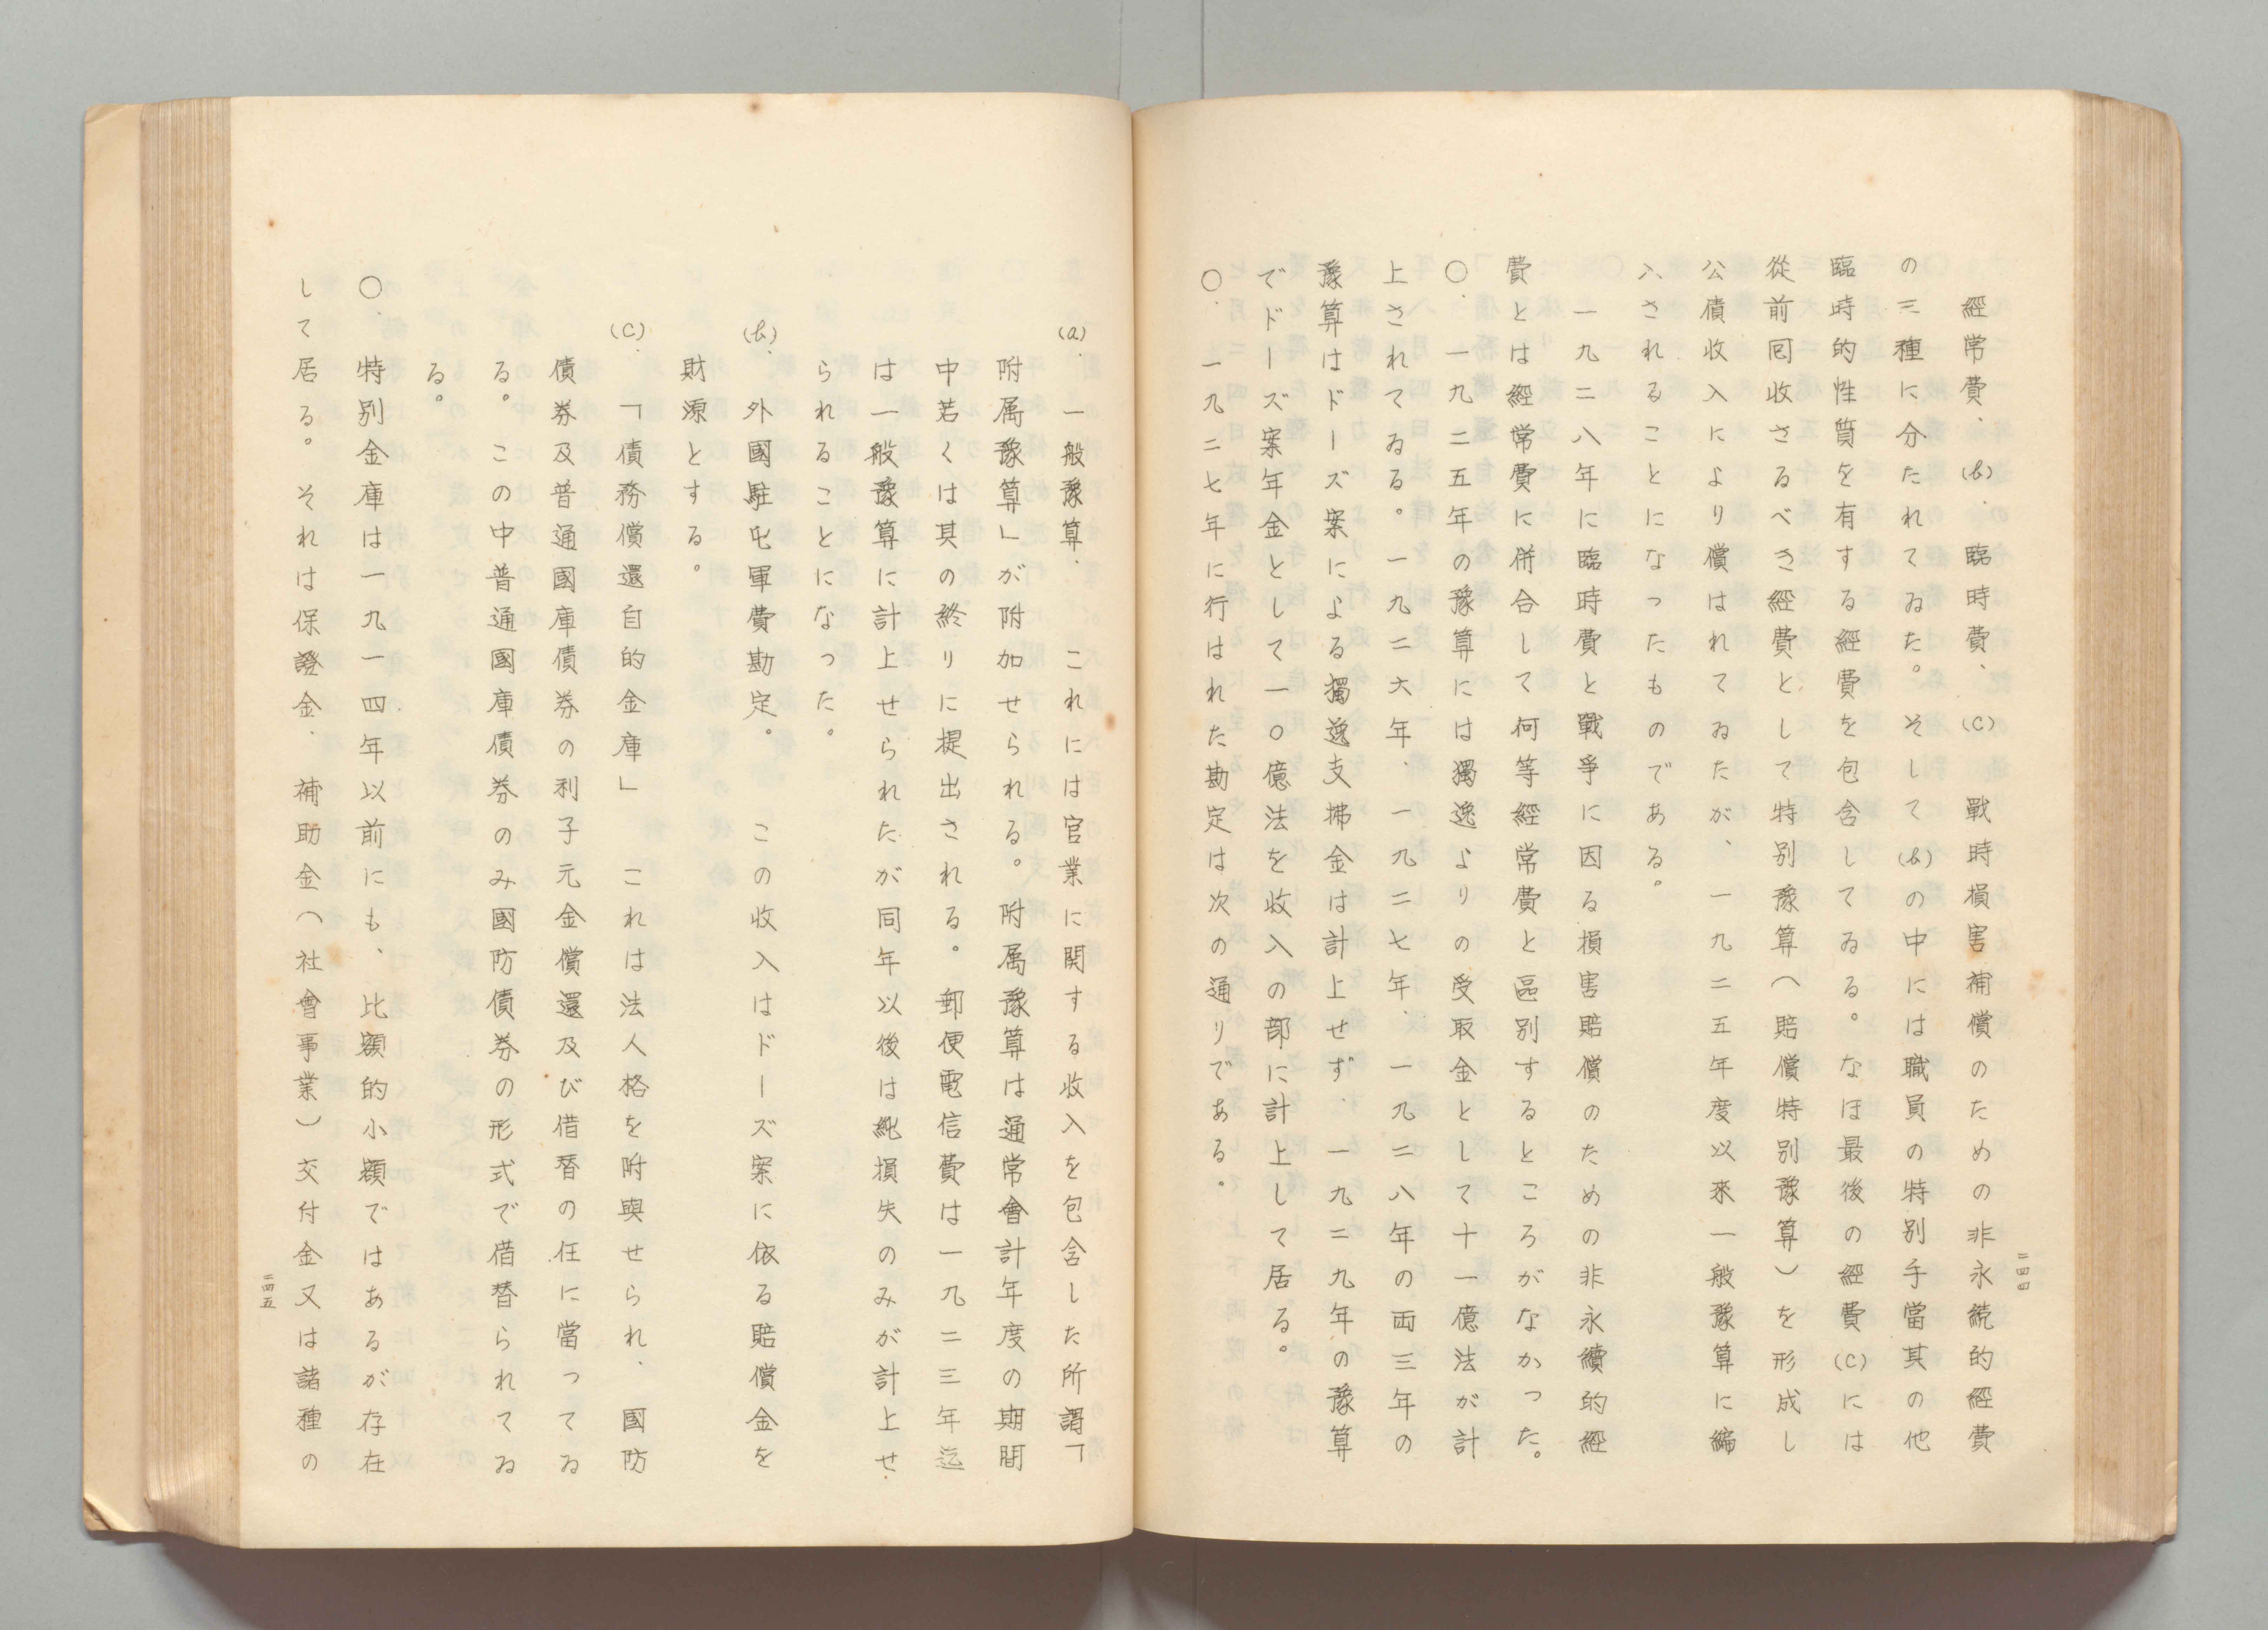 經常費、(b)、臨時費、(c)戰時損害補償のための非永続的經費
の三種に分たれてゐた。そして(b)の中には職員の特別手當其の他
臨時的性質を有する經費を包含してゐる。なほ最後の經費(c)には
從前囘收さるべき經費として特別豫算(賠償特別豫算)を形成し
公債收入により償はれてゐたが、一九二五年度以來一般豫算に締
入されることになったものである。
一九二八年に臨時費と戰爭に因る損害賠償のための非永續的經
費とは經常費に併合して何等經常費と區別するところがなかった。
〇.一九二五年の豫算には獨逸よりの受取金として十一億法が計
上されてゐる。一九二六年、一九二七年、一九二八年の両三年の
豫算はドーズ案による獨逸支拂金は計上せず、一九二九年の豫算
でドーズ案年金として一〇億法を收入の部に計上して居る。
〇.一九二七年に行はれた勘定は次の通りである。
二四四
(a).一般豫算.これには官業に関する收入を包含した所謂「
附属豫算」が附加せられる。附属豫算は通常會計年度の期間
中若くは其の終りに提出される。郵便電信費は一九二三年迄
は一般豫算に計上せられたが同年以後は純損失のみが計上せ
られることになった。
(b).外國駐屯軍費勘定。この收入はドーズ案に依る賠償金を
財源とする。
(c).「債務償還自的金庫」これは法人格を附與せられ、國防
債券及普通國庫債券の利子元金償還及び借替の任に當ってゐ
る。この中普通國庫債券のみ國防債券の形式で借替られてゐ
る。
〇.特別金庫は一九一四年以前にも、比額的小額ではあるが存在
して居る。それは保證金、補助金(社會事業)交付金又は諸種の
二四五